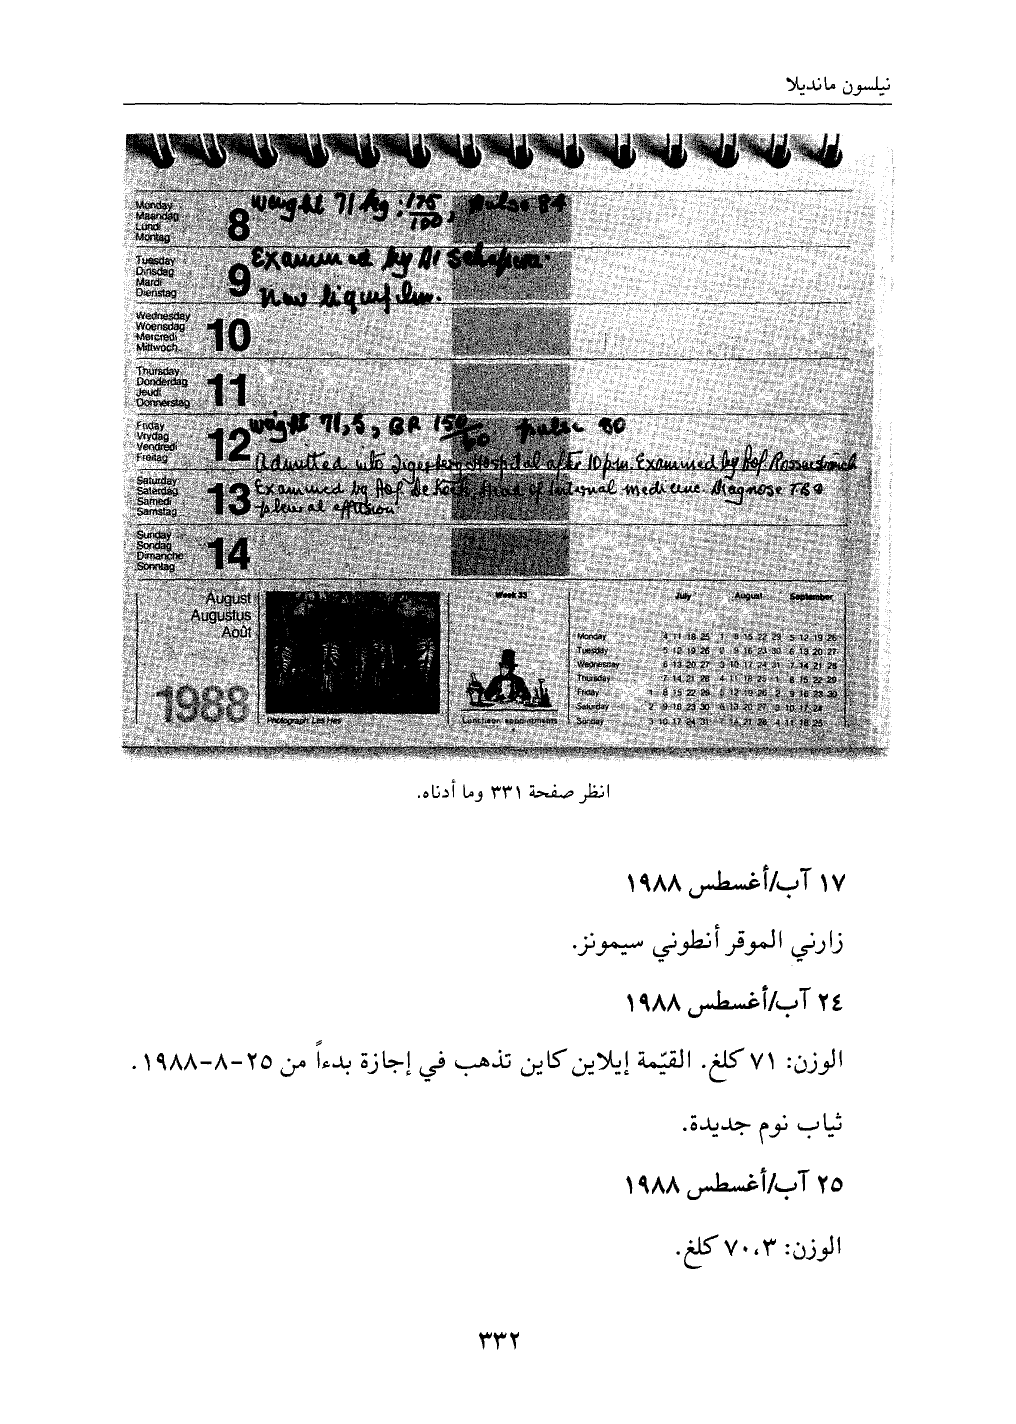 نيلسون مانديلا
Monday
Maandag
Lundi
Montag
8
weight 71 kg : 175/100, pulse 84
Tuesday
Dinsdag
Mardi
Dienstag
9
Examined by Dr
New liquifilm.
Wednesday
Woensdag
Mercredi
Mittwoch
10
Thursday
Donderdag
Jeudi
Donnerstag
11
Friday
Vrydag
Vendredi
Freitag
12
weight 71,5, BP 150/80 pulse 80
Admitted into Hospital after 10 pm. Examined by Prof.
Saturday
Saterdag
Samedi
Samstag
13
Examined by Prof De Kock, Head of Internal medicine. Diagnose TB &
pleural effusion
Sunday
Sondag
Dimanche
Sonntag
14
August
Augustus
Août
1988
Photograph: Les Hes
Week 33
Luncheon appointments
July August September
Monday 4 11 18 25 1 8 15 22 29 5 12 19 26
Tuesday 5 12 19 26 2 9 16 23 30 6 13 20 27
Wednesday 6 13 20 27 3 10 17 24 31 7 14 21 28
Thursday 7 14 21 28 4 11 18 25 1 8 15 22 29
Friday 1 8 15 22 29 5 12 19 26 2 9 16 23 30
Saturday 2 9 16 23 30 6 13 20 27 3 10 17 24
Sunday 3 10 17 24 31 7 14 21 28 4 11 18 25
انظر صفحة ٣٣١ وما أدناه.
١٧ آب/أغسطس ١٩٨٨
زارني الموقر أنطوني سيمونز.
٢٤ آب/أغسطس ١٩٨٨
الوزن: ٧١ كلغ. القيّمة إيلاين كاين تذهب في إجازة بدءاً من ٢٥-٨-١٩٨٨.
ثياب نوم جديدة.
٢٥ آب/أغسطس ١٩٨٨
الوزن: ٧٠،٣ كلغ.
٣٣٢